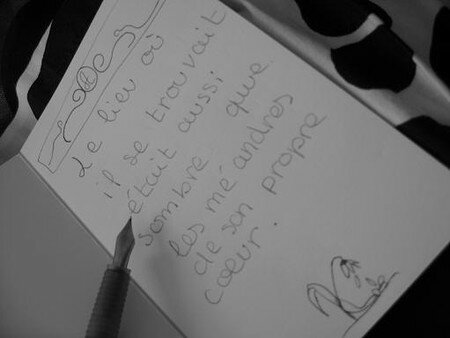 Le lieu où
il se trouvait
était aussi
sombre que
les méandres
de son propre
coeur.